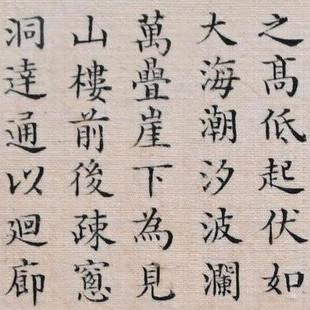 之高低起伏如
大海潮汐波瀾
萬疊崖下為見
山樓前後疎窻
洞達通以廻廊